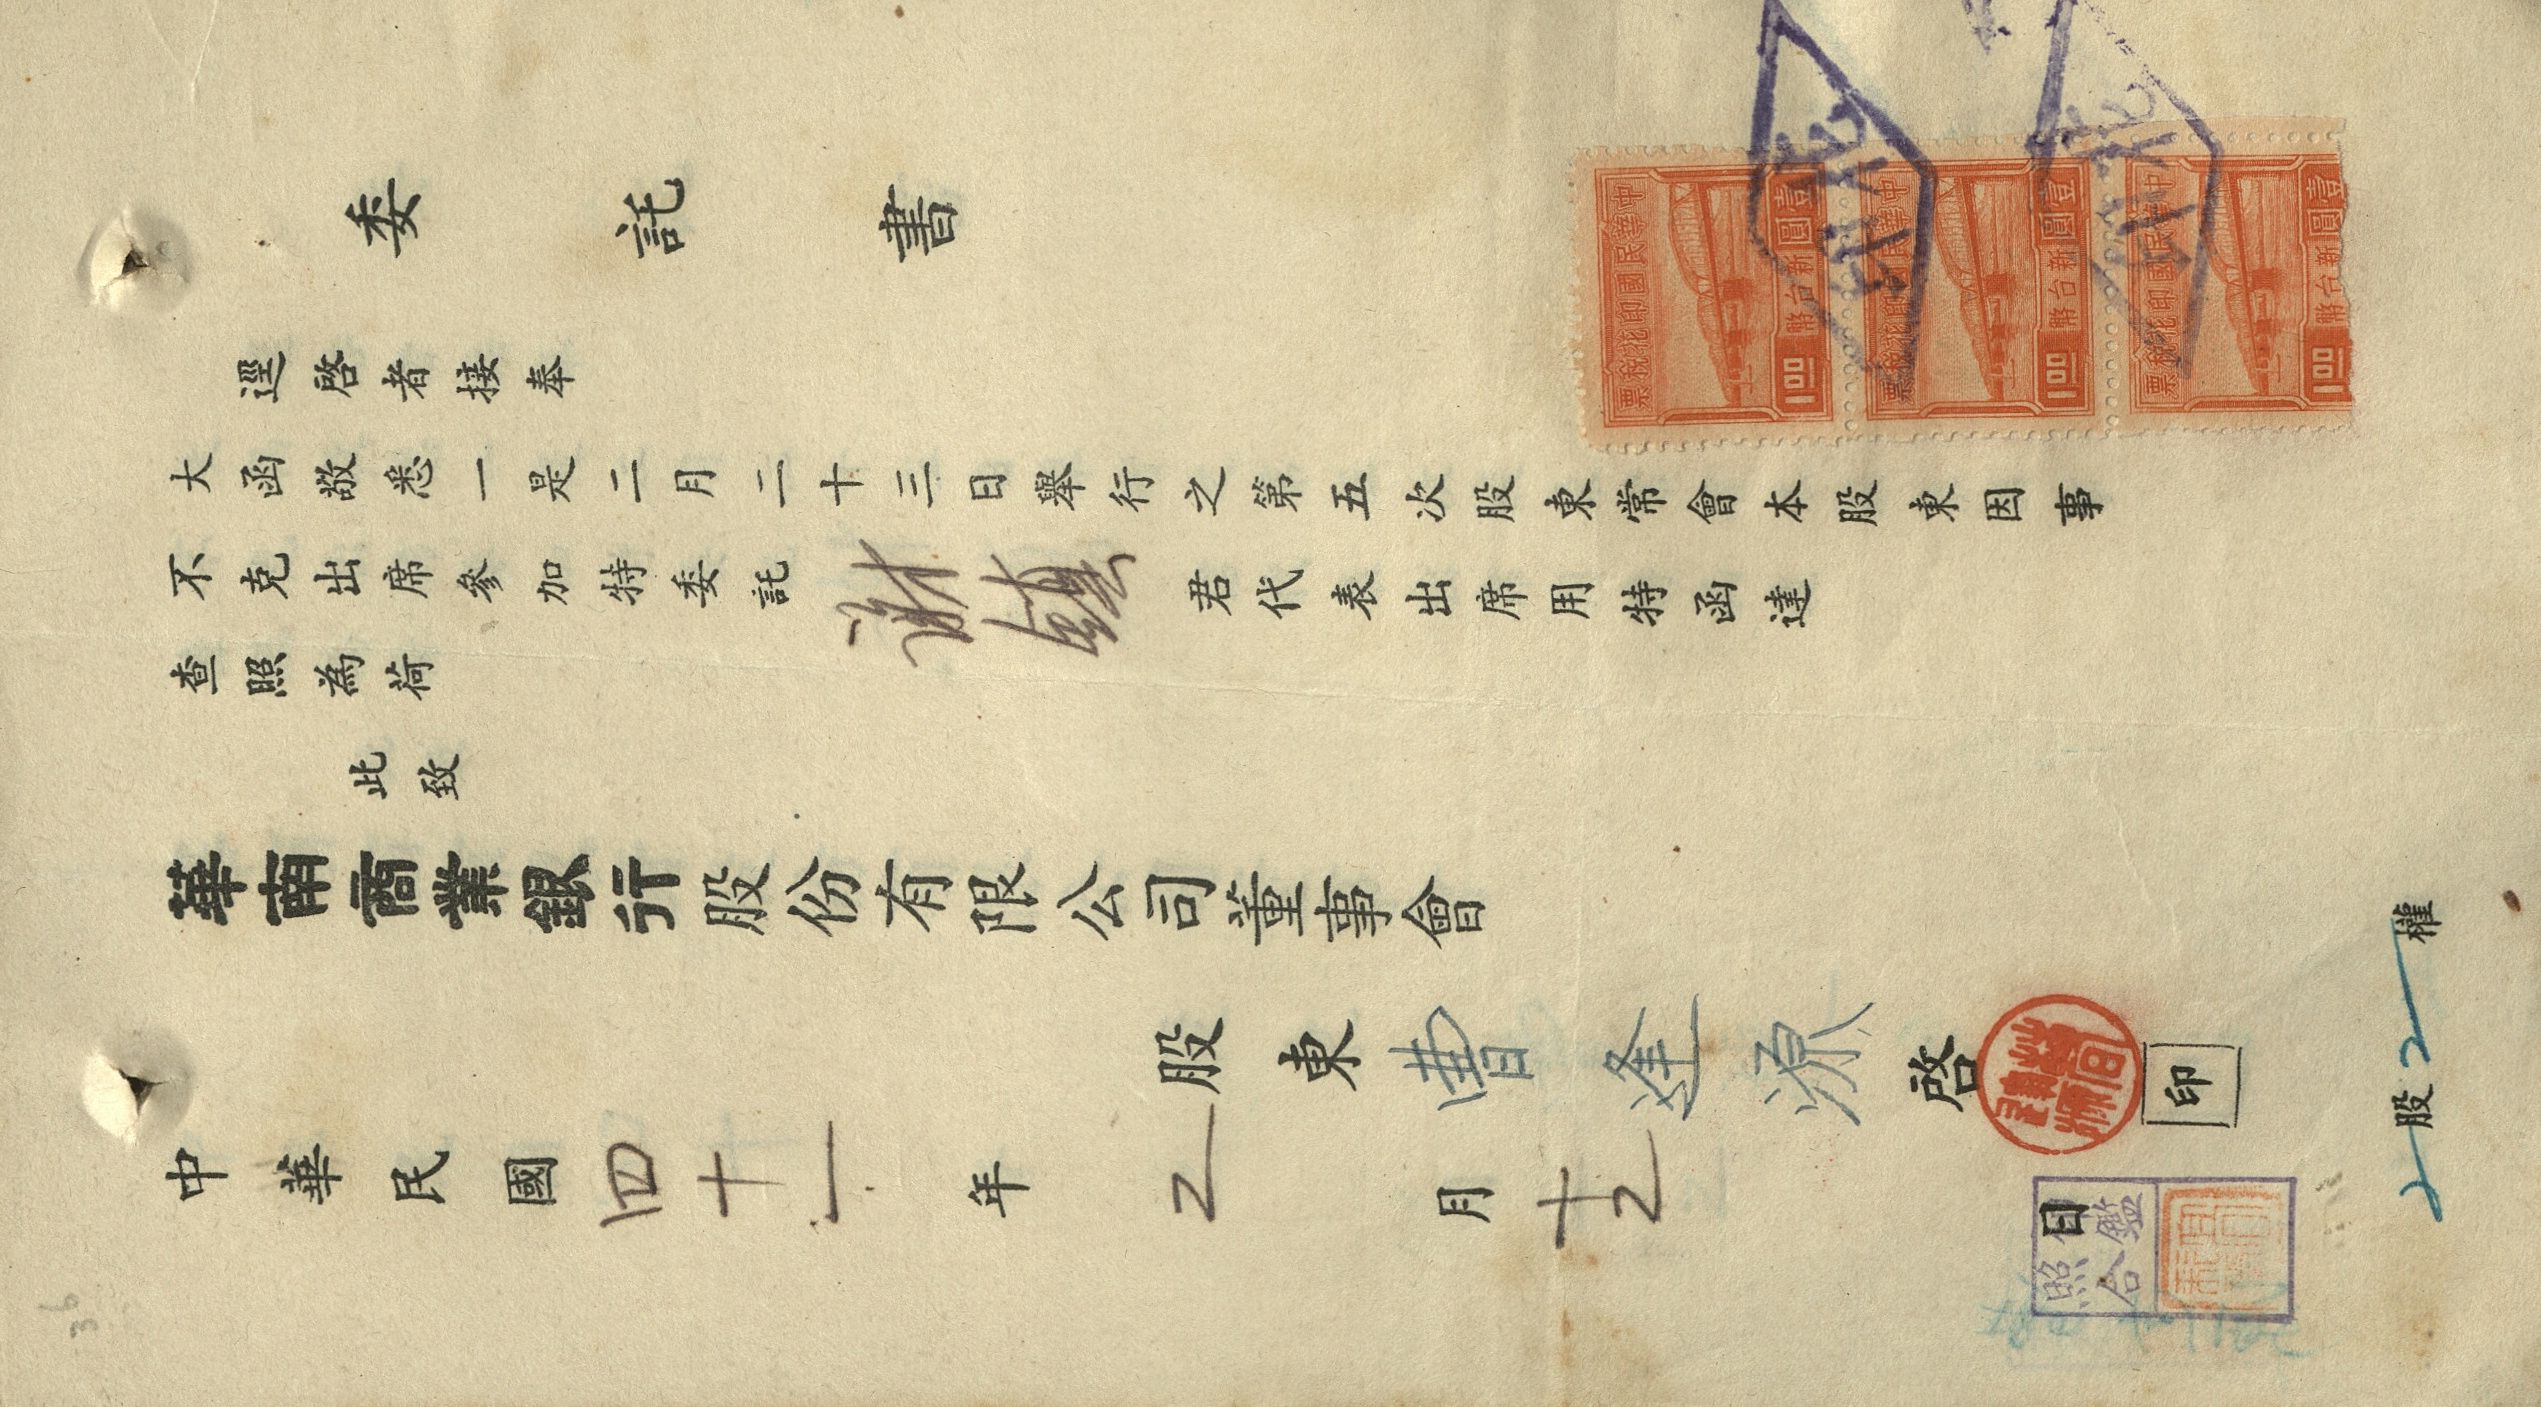 委託書
逕啓者接奉
大函敬悉一是二月二十三日舉行之第五次股東常會本股東因事
不克出席參加特委託謝鎮君代表出席用特函達
查照為荷
此致
華南商業銀行股份有限公司董事會
股東曹逢源啓印
中華民國四十一年2月十2日
2股2權
中華民國印花稅票
壹圓新台幣
1.00
中華民國印花稅票
壹圓新台幣
1.00
中華民國印花稅票
壹圓新台幣
1.00
印鑑
照合
36